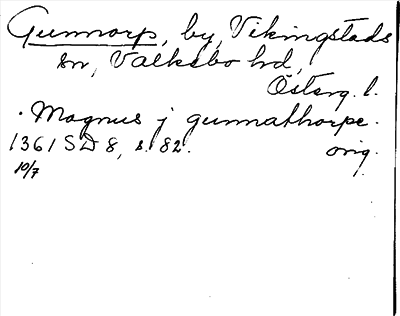 Gunnorp, by, Vikingstads
sn, Valkebo hd,
Österg. l.
· Magnus j gunnathorpe.
1361 SD 8, s. 82. orig.
10/7